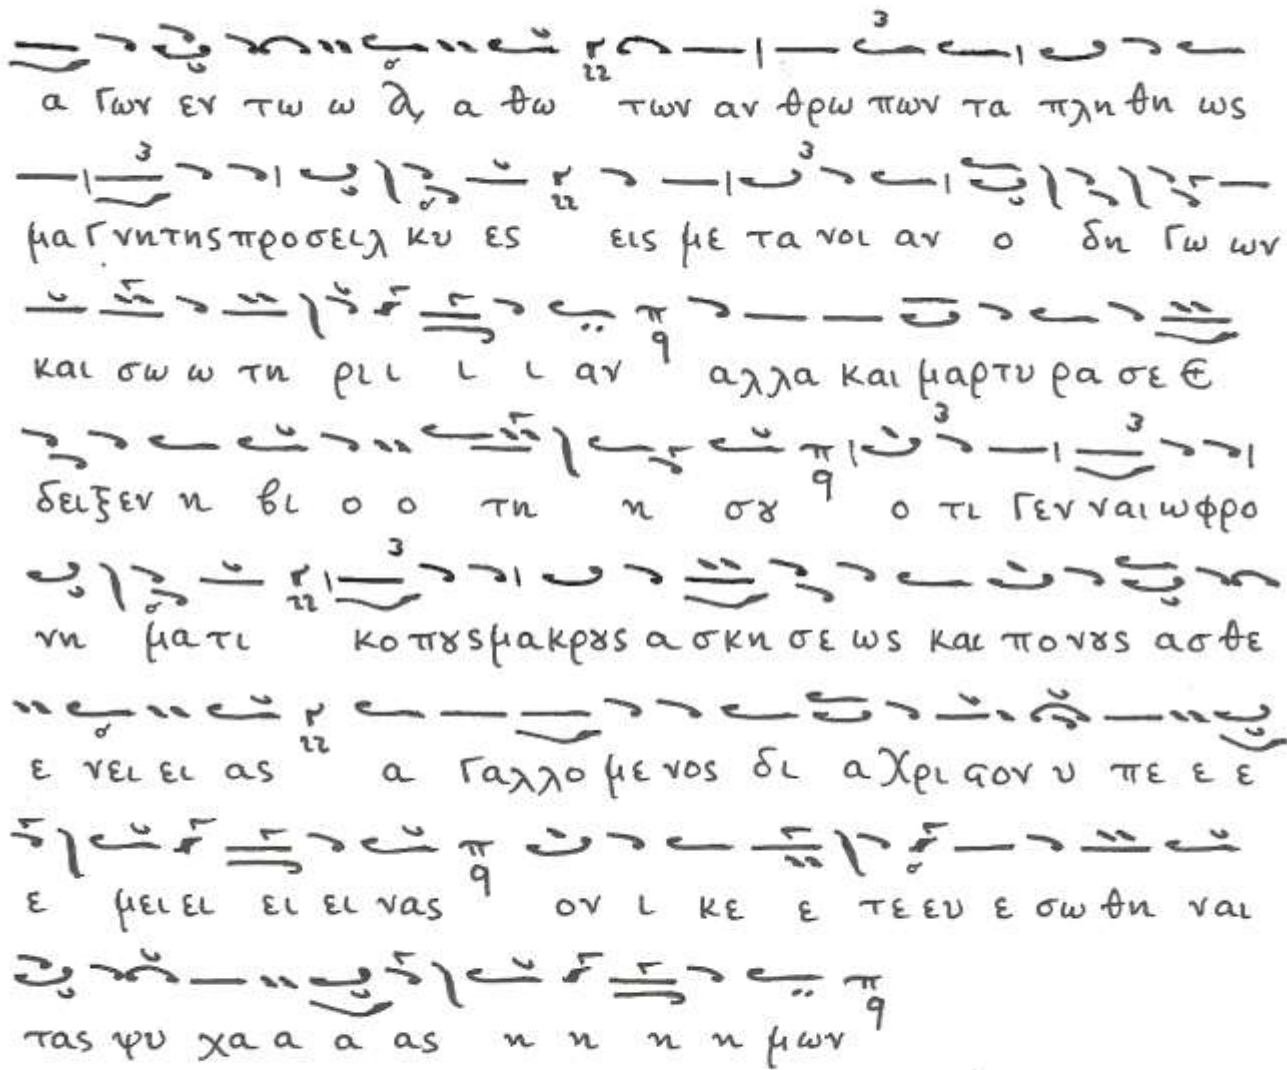 α Γων εν τω ω ϡ, α θω των αν θρω πων τα πλη θη ως
μα Γνητης προσειλ κυ ες εις με τα νοι αν ο δη Γω ων
και σω ω τη ρι ι ι ι αν αλλα και μαρτυ ρα σε ε
δειξεν η βι ο ο τη η σȣ ο τι Γεν ναι ωφρο
νη ματι κο πȣς μακρȣς α σκη σε ως και πο νȣς ασ θε
ε νει ει ας α Γαλλο με νος δι α Χρι ϛον υ πε ε ε
ε μει ει ει ει νας ον ι κε ε τε ευ ε σω θη ναι
τας ψυ χα α α ας η η η η μων